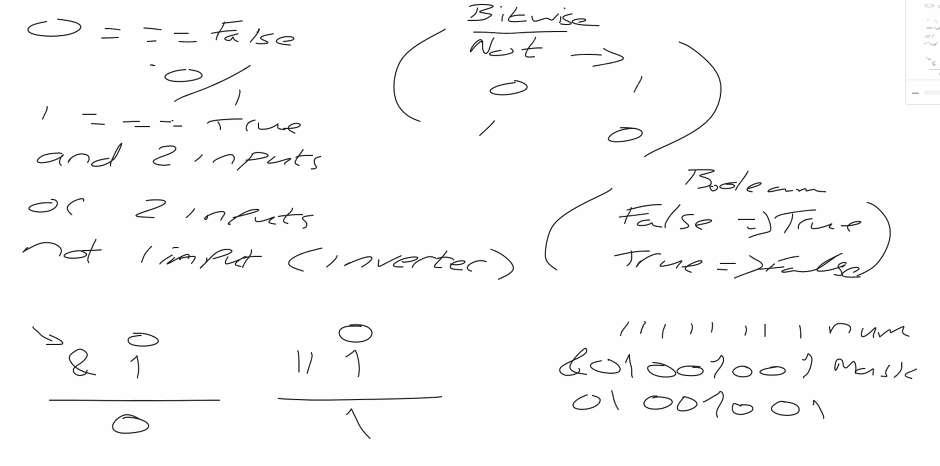 0 = === False
0/1
1 = === True
and 2 inputs
or 2 inputs
not 1 input (inverter)
Bitwise
Not →
0 1
1 0
Boolean
False => True
True => False
0
& 1
0
0
|| 1
1
1 1 1 1 1 1 1 1 num
& 0 1 0 0 1 0 0 1 Mask
0 1 0 0 1 0 0 1